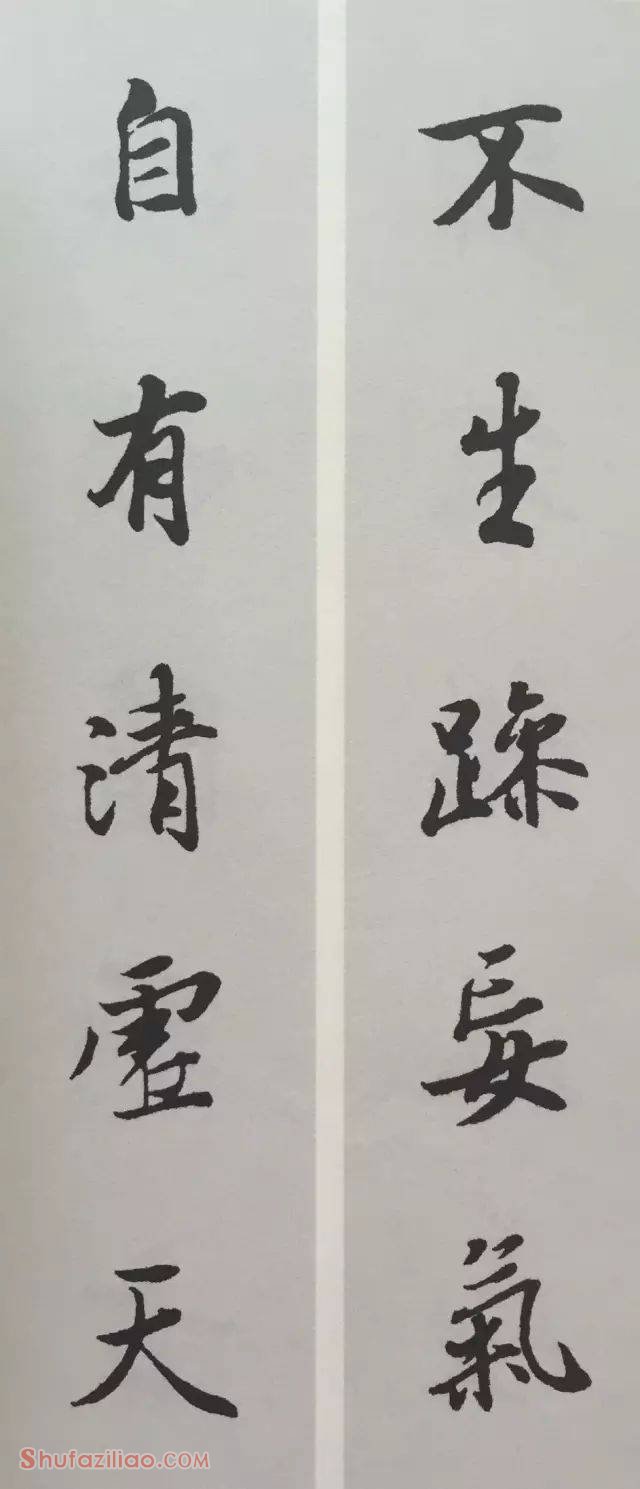 不生躁妄氣
自有清虛天
Shufaziliao.com